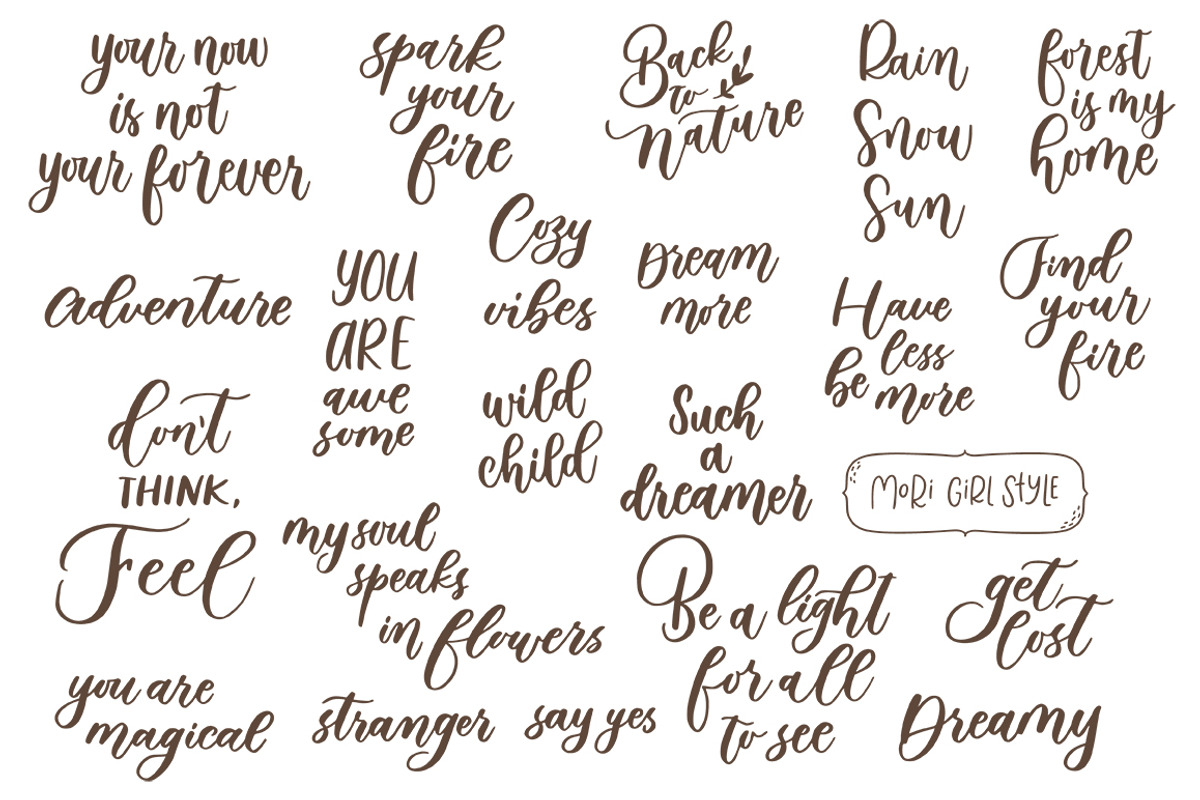 your now
is not
your forever
spark
your
fire
Back
to
nature
Rain
Snow
Sun
forest
is my
home
Cozy
vibes
Adventure
YOU
ARE
awe
some
Dream
more
Have
less
be more
Find
your
fire
don't
THINK,
Feel
wild
child
Such
a
dreamer
MORI GIRL STYLE
my soul
speaks
in flowers
Be a light
for all
to see
get
lost
you are
magical
stranger
say yes
Dreamy